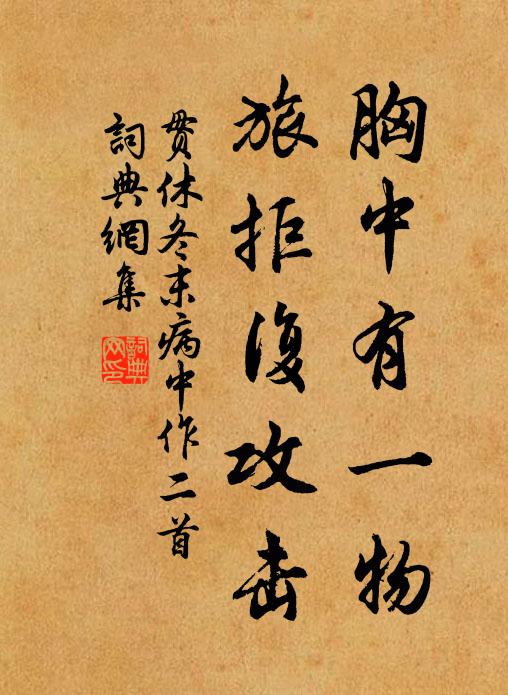 胸中有一物
旅拒復攻击
贯休冬末病中作二首
詞典網集
詞典
网印